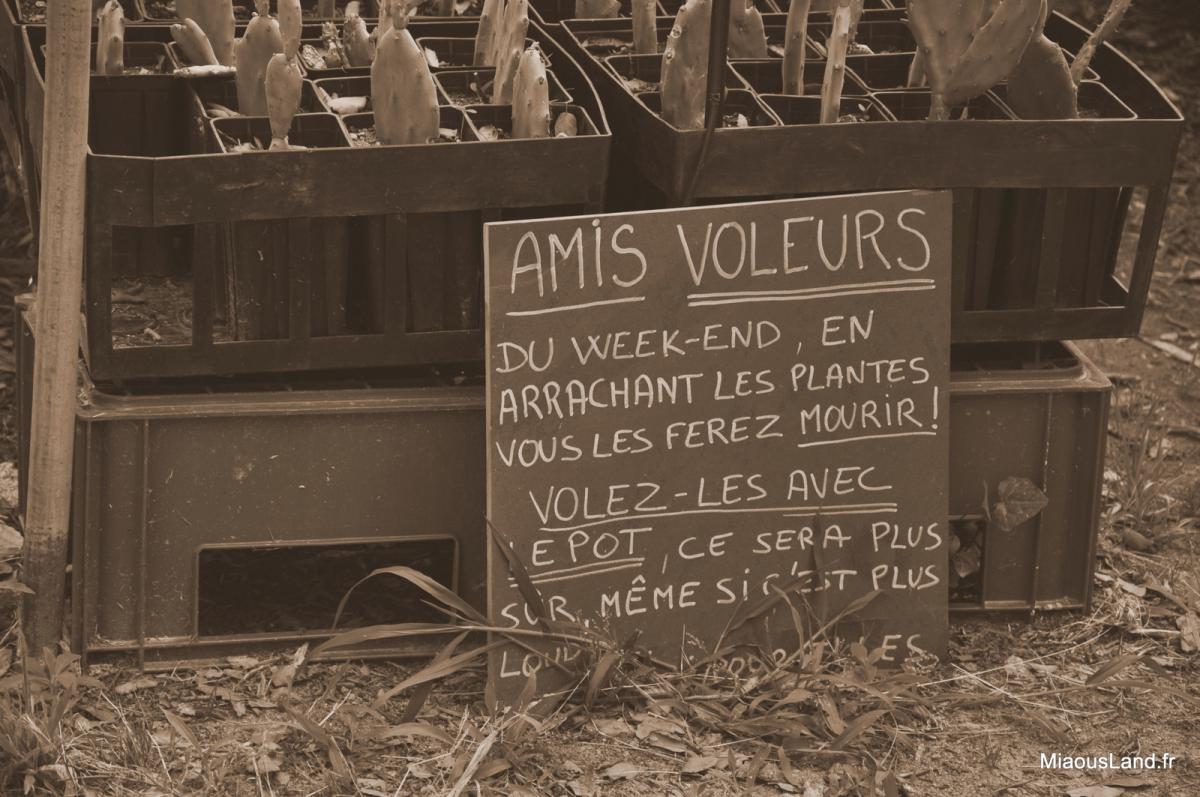 AMIS VOLEURS
DU WEEK-END, EN
ARRACHANT LES PLANTES
VOUS LES FEREZ MOURIR!
VOLEZ-LES AVEC
LE POT, CE SERA PLUS
SÛR, MÊME SI C'EST PLUS
MiaousLand.fr